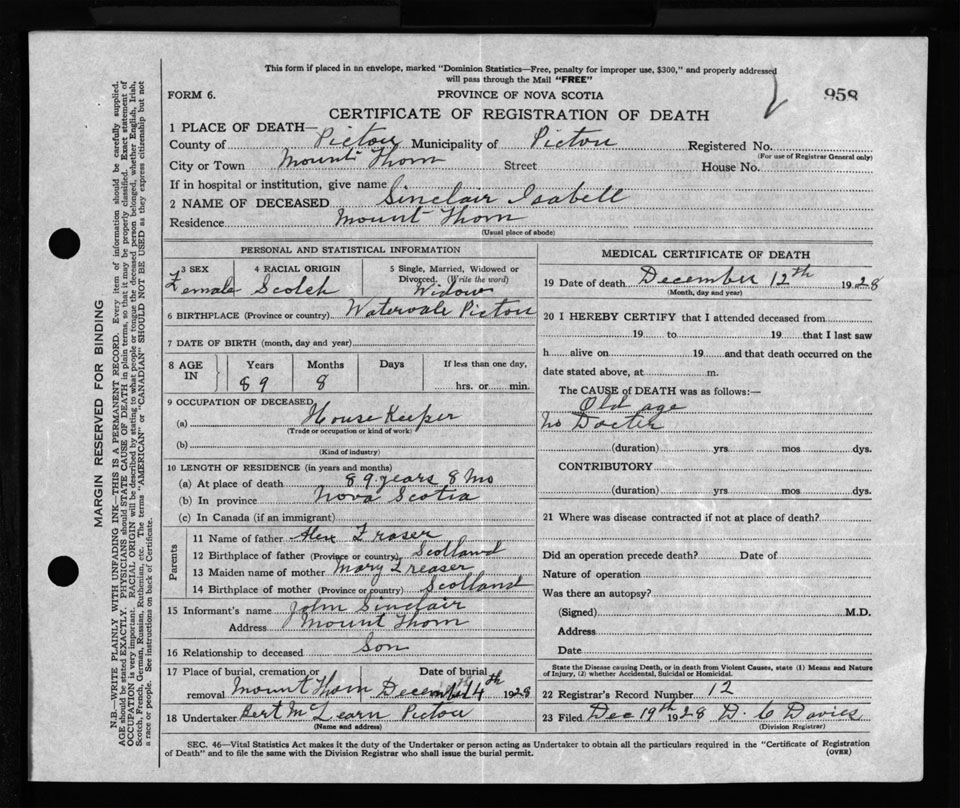 This form if placed in an envelope, marked "Dominion Statistics—Free, penalty for improper use, $300," and properly addressed
will pass through the Mail "FREE"
FORM 6. PROVINCE OF NOVA SCOTIA 958
CERTIFICATE OF REGISTRATION OF DEATH
1 PLACE OF DEATH—
County of Pictou Municipality of Pictou Registered No.
(For use of Registrar General only)
City or Town Mount Thom Street House No.
If in hospital or institution, give name
2 NAME OF DECEASED Sinclair Isabell
Residence Mount Thom
(Usual place of abode)
PERSONAL AND STATISTICAL INFORMATION
3 SEX Female
4 RACIAL ORIGIN Scotch
5 Single, Married, Widowed or Divorced. (Write the word) Widow
6 BIRTHPLACE (Province or country) Watervale Pictou
7 DATE OF BIRTH (month, day and year)
8 AGE IN Years 89 Months 8 Days If less than one day, hrs. or min.
9 OCCUPATION OF DECEASED
(a) House Keeper
(Trade or occupation or kind of work)
(b)
(Kind of industry)
10 LENGTH OF RESIDENCE (in years and months)
(a) At place of death 89 years 8 Mo
(b) In province Nova Scotia
(c) In Canada (if an immigrant)
Parents
11 Name of father Alex Fraser
12 Birthplace of father (Province or country) Scotland
13 Maiden name of mother Mary Freaser
14 Birthplace of mother (Province or country) Scotland
15 Informant's name John Sinclair
Address Mount Thom
16 Relationship to deceased Son
17 Place of burial, cremation or removal Mount Thom Date of burial December 14th 1928
18 Undertaker Bert McLearn Pictou
(Name and address)
MEDICAL CERTIFICATE OF DEATH
19 Date of death December 12th 1928
(Month, day and year)
20 I HEREBY CERTIFY that I attended deceased from
19 to 19 that I last saw
h alive on 19 and that death occurred on the
date stated above, at m.
The CAUSE of DEATH was as follows:
Old age
no Docter
(duration) yrs mos dys.
CONTRIBUTORY
(duration) yrs mos dys.
21 Where was disease contracted if not at place of death?
Did an operation precede death? Date of
Nature of operation
Was there an autopsy?
(Signed) M.D.
Address
Date
State the Disease causing Death, or in death from Violent Causes, state (1) Means and Nature
of Injury, (2) whether Accidental, Suicidal or Homicidal.
22 Registrar's Record Number 12
23 Filed Dec 19th 1928 D. C Davies
(Division Registrar)
SEC. 46—Vital Statistics Act makes it the duty of the Undertaker or person acting as Undertaker to obtain all the particulars required in the "Certificate of Registration
of Death" and to file the same with the Division Registrar who shall issue the burial permit. (OVER)
MARGIN RESERVED FOR BINDING
N.B.—WRITE PLAINLY WITH UNFADING INK—THIS IS A PERMANENT RECORD. Every item of information should be carefully supplied.
AGE should be stated EXACTLY. PHYSICIANS should STATE CAUSE OF DEATH in plain terms, so that it may be properly classified. Exact statement of
OCCUPATION is very important. RACIAL ORIGIN will be described by stating to what people or tongue the deceased person belonged, whether English, Irish,
Scotch, French, German, Russian, Ruthenian, etc. The terms "AMERICAN" or "CANADIAN" SHOULD NOT BE USED as they express citizenship but not
a race or people. See instructions on back of Certificate.